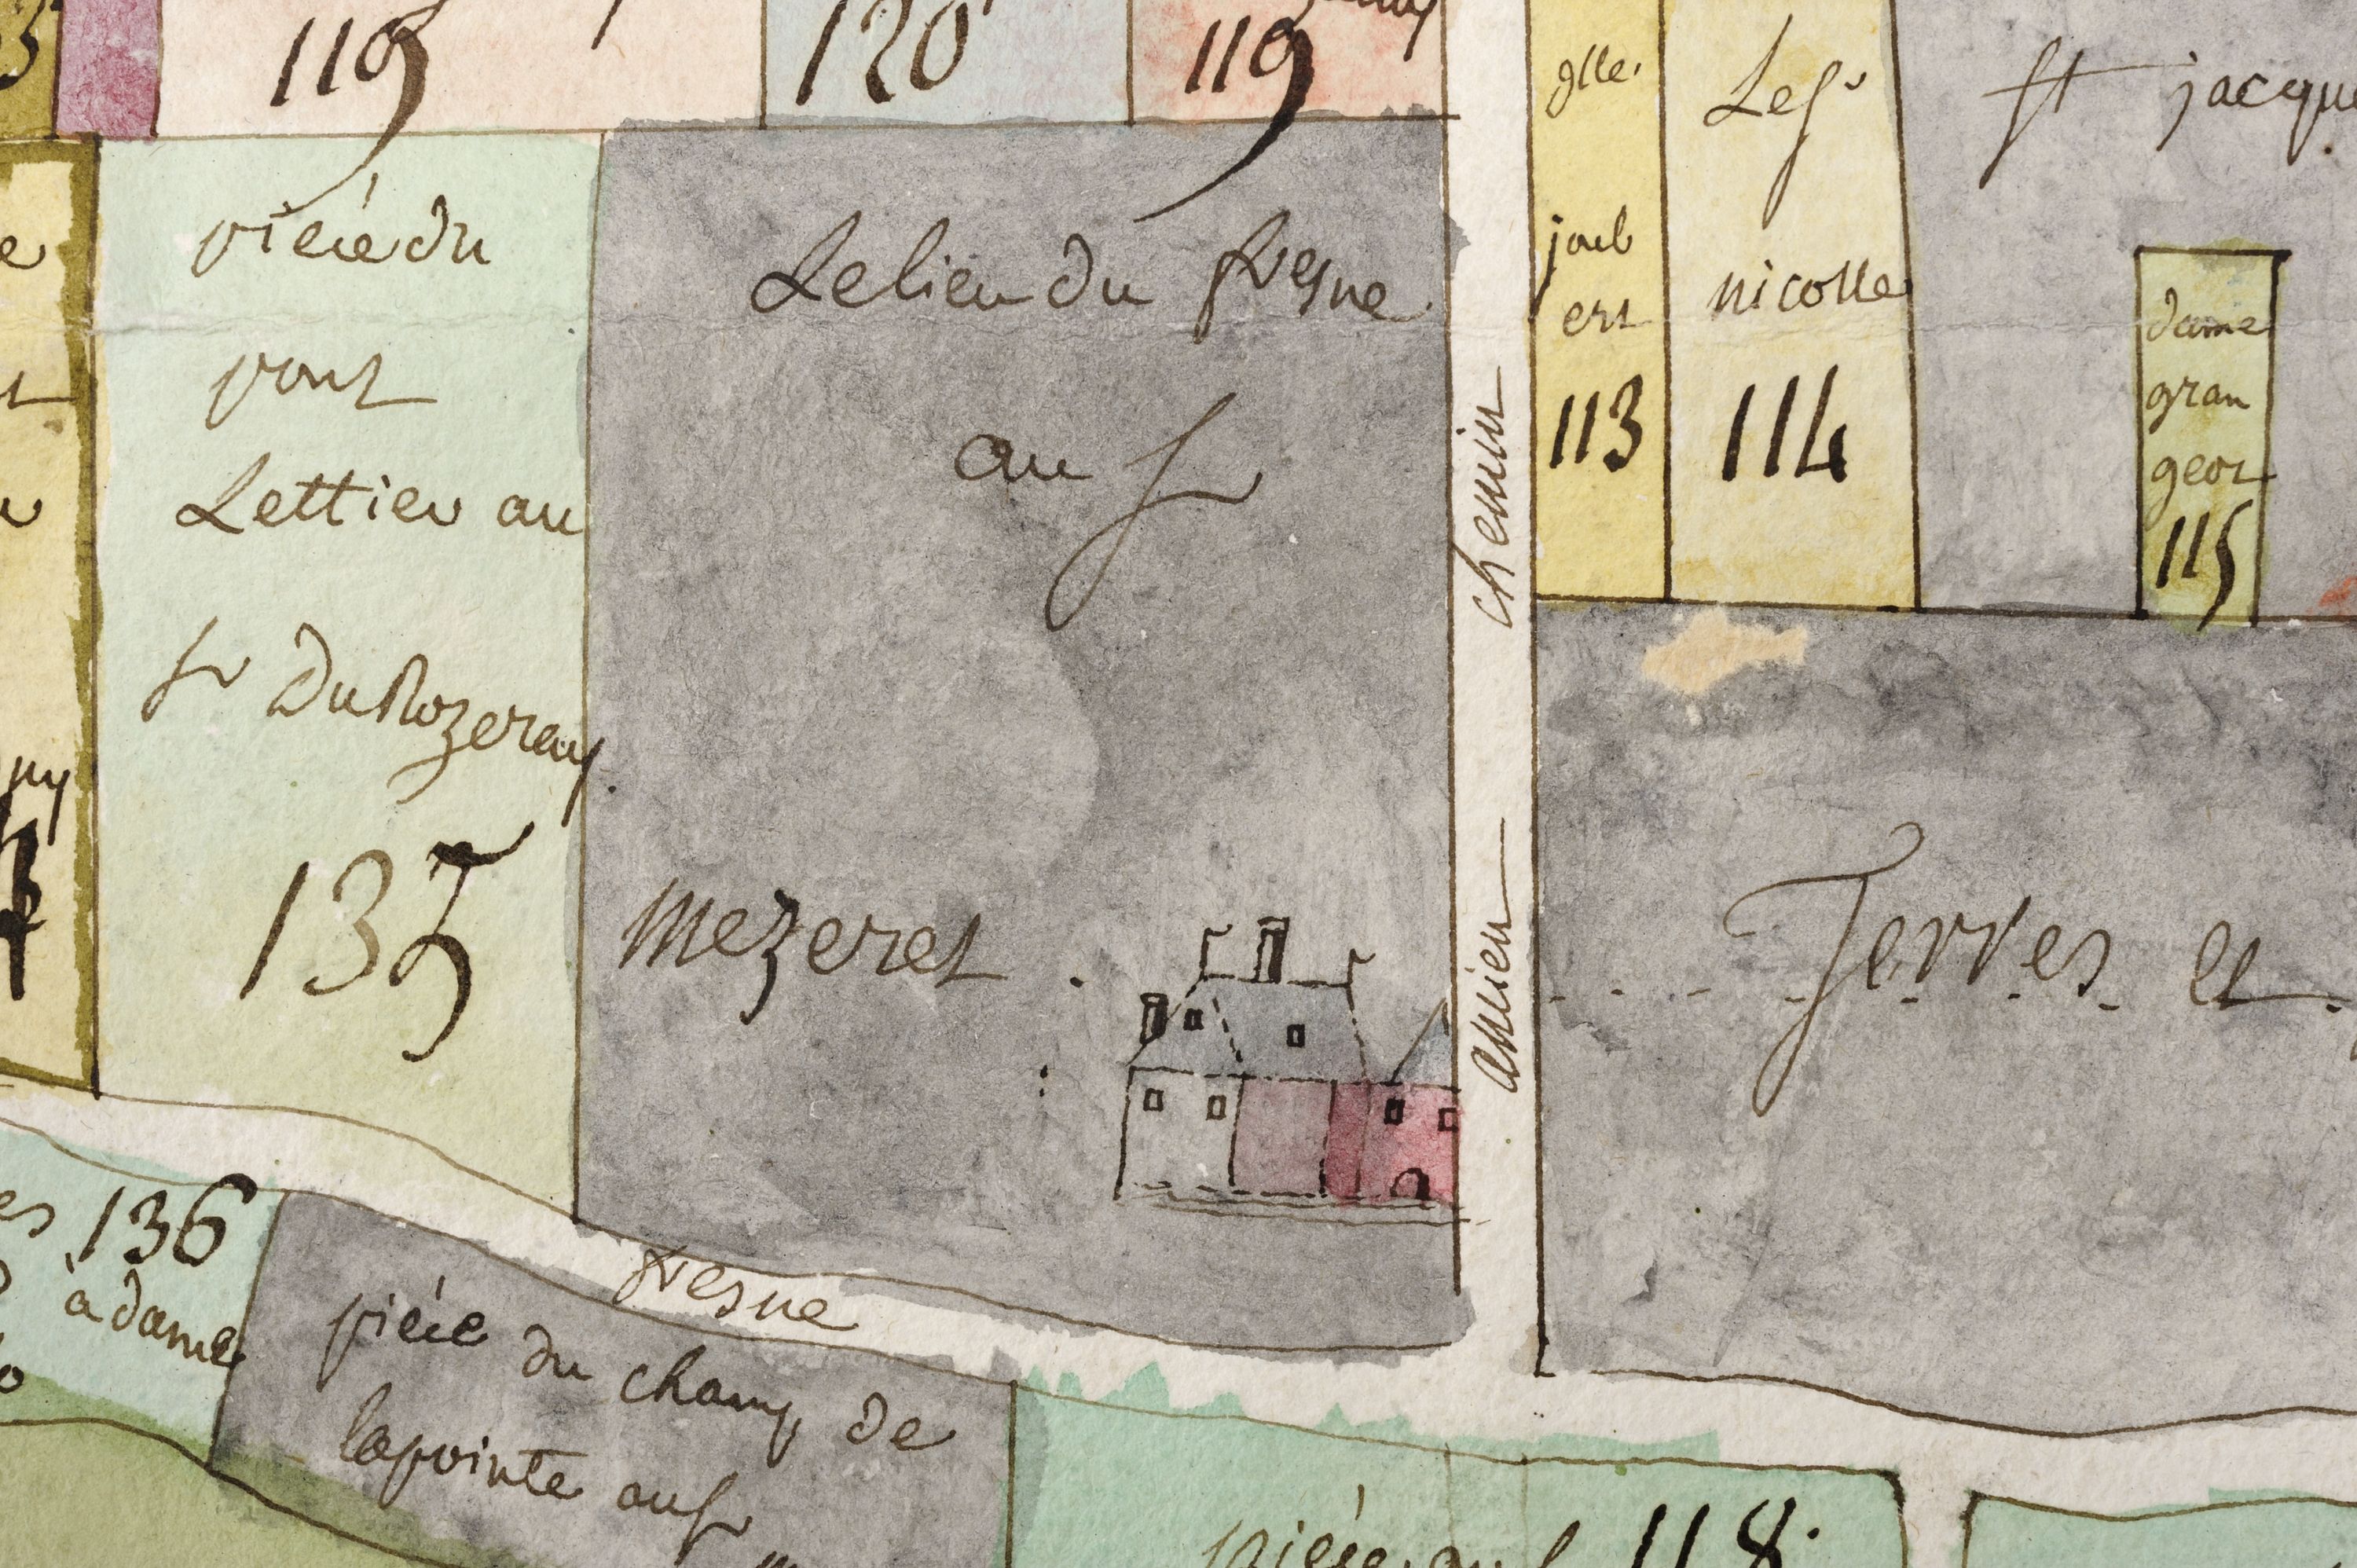 119
120
119
glle.
joub
ert
113
Le sr
nicolle
114
st jacque
dame
gran
geor
115
pieće du
pont
Lettier au
sr DuRozeray.
135
Le lieu du fresne
au sr
mezeret
chemin
ansien
Terres et
136
à dame
fresne
pieće du champ de
lapointe au sr
pieće au
118.